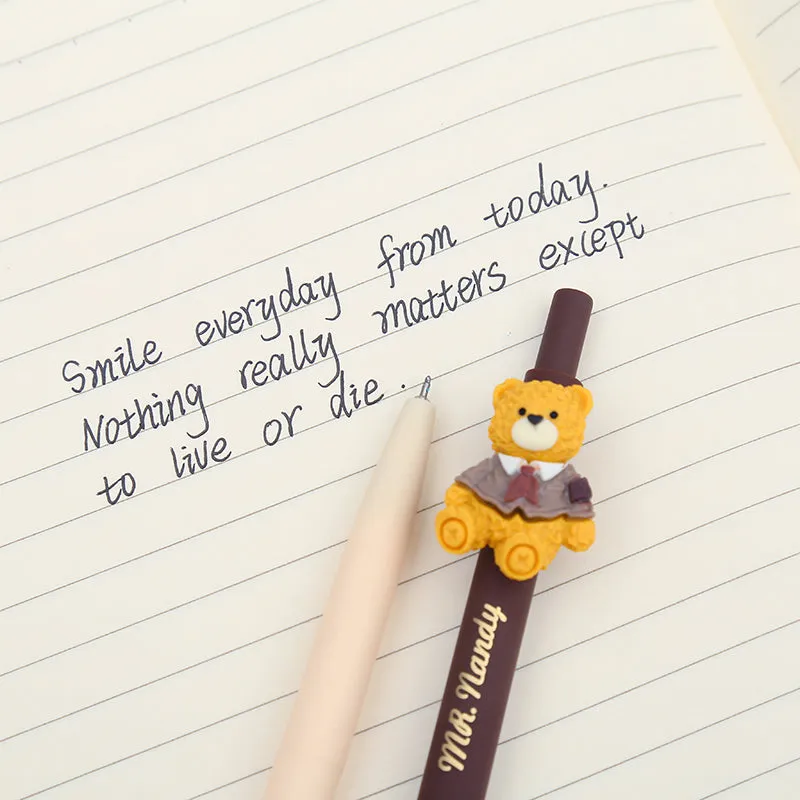 Smile everyday from today.
Nothing really matters except
to live or die.
MR. Nandy